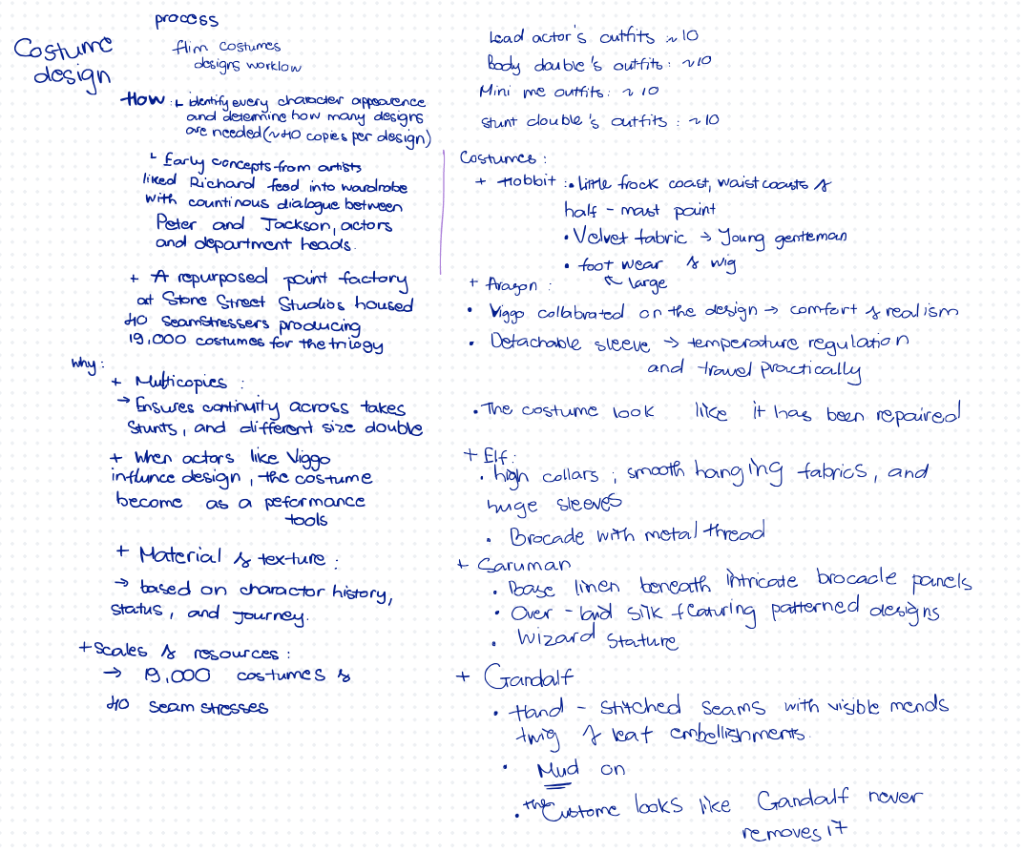 Costume
design
process
film costumes
designs worklow
How : ↳ identify every character appearence
and determine how many designs
are needed (~40 copies per design)
↳ Early concepts from artists
liked Richard feed into wardrobe
with countinous dialogue between
Peter and Jackson, actors
and department heads.
+ A repurposed paint factory
at Stone Street Studios housed
40 Seamstressers producing
19,000 costumes for the trilogy
why :
+ Multicopies :
→ Ensures continuity across takes
Stunts, and different size double
+ When actors like Viggo
influnce design, the costume
become as a peformance
tools
+ Material & texture :
→ based on charactor history,
status, and Journey.
+ Scales & resources :
→ 19,000 costumes &
40 seamstresses
Lead actor's outfits ~ 10
Body double's outfits : ~10
Mini me outfits : ~ 10
stunt double's outfits : ~10
Costumes :
+ Hobbit : • Little frock coast, waistcoasts &
half - mast paint
• Velvet fabric → Young genteman
• foot wear & wig
↖ large
+ Aragon :
• Viggo collabrated on the design → comfort & realism
• Detachable sleeve → temperature regulation
and travel practically
• The costume look like it has been repaired
+ Elf :
• high collars ; smooth hanging fabrics, and
huge sleeves
• Brocade with metal thread
+ Saruman
• Base linen beneath intricate brocade panels
• Over - laid silk featuring patterned designs
• Wizard Stature
+ Gandalf
• Hand - stitched seams with visible mends
twig & leaf embellishments.
• Mud on
• the Custome looks like Gandalf never
removes it